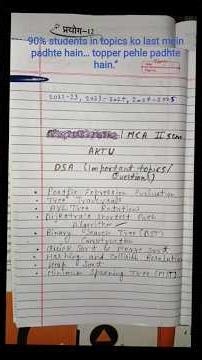 प्रयोग-12
90% students in topics ko last mein
padhte hain... topper pehle padhte
hain."
2022-23, 2023-2024, 2024-2025
MCA II Sem
AKTU
DSA (important topics/
Questions)
• Postfix Expression Evaluation
• Tree Traversals
• AVL Tree Rotations
• Dijkstra's Shortest Path
Algorithm
• Binary Search Tree (BST)
Construction
• Quick Sort & Merge Sort
• Hashing and Collision Resolution
• Heap Sort
• Minimum Spanning Tree (MST)